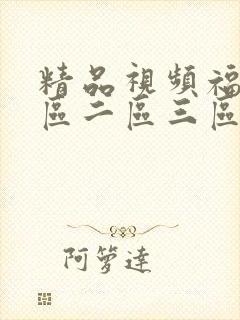 精品視頻福
區二區三區
阿箩達